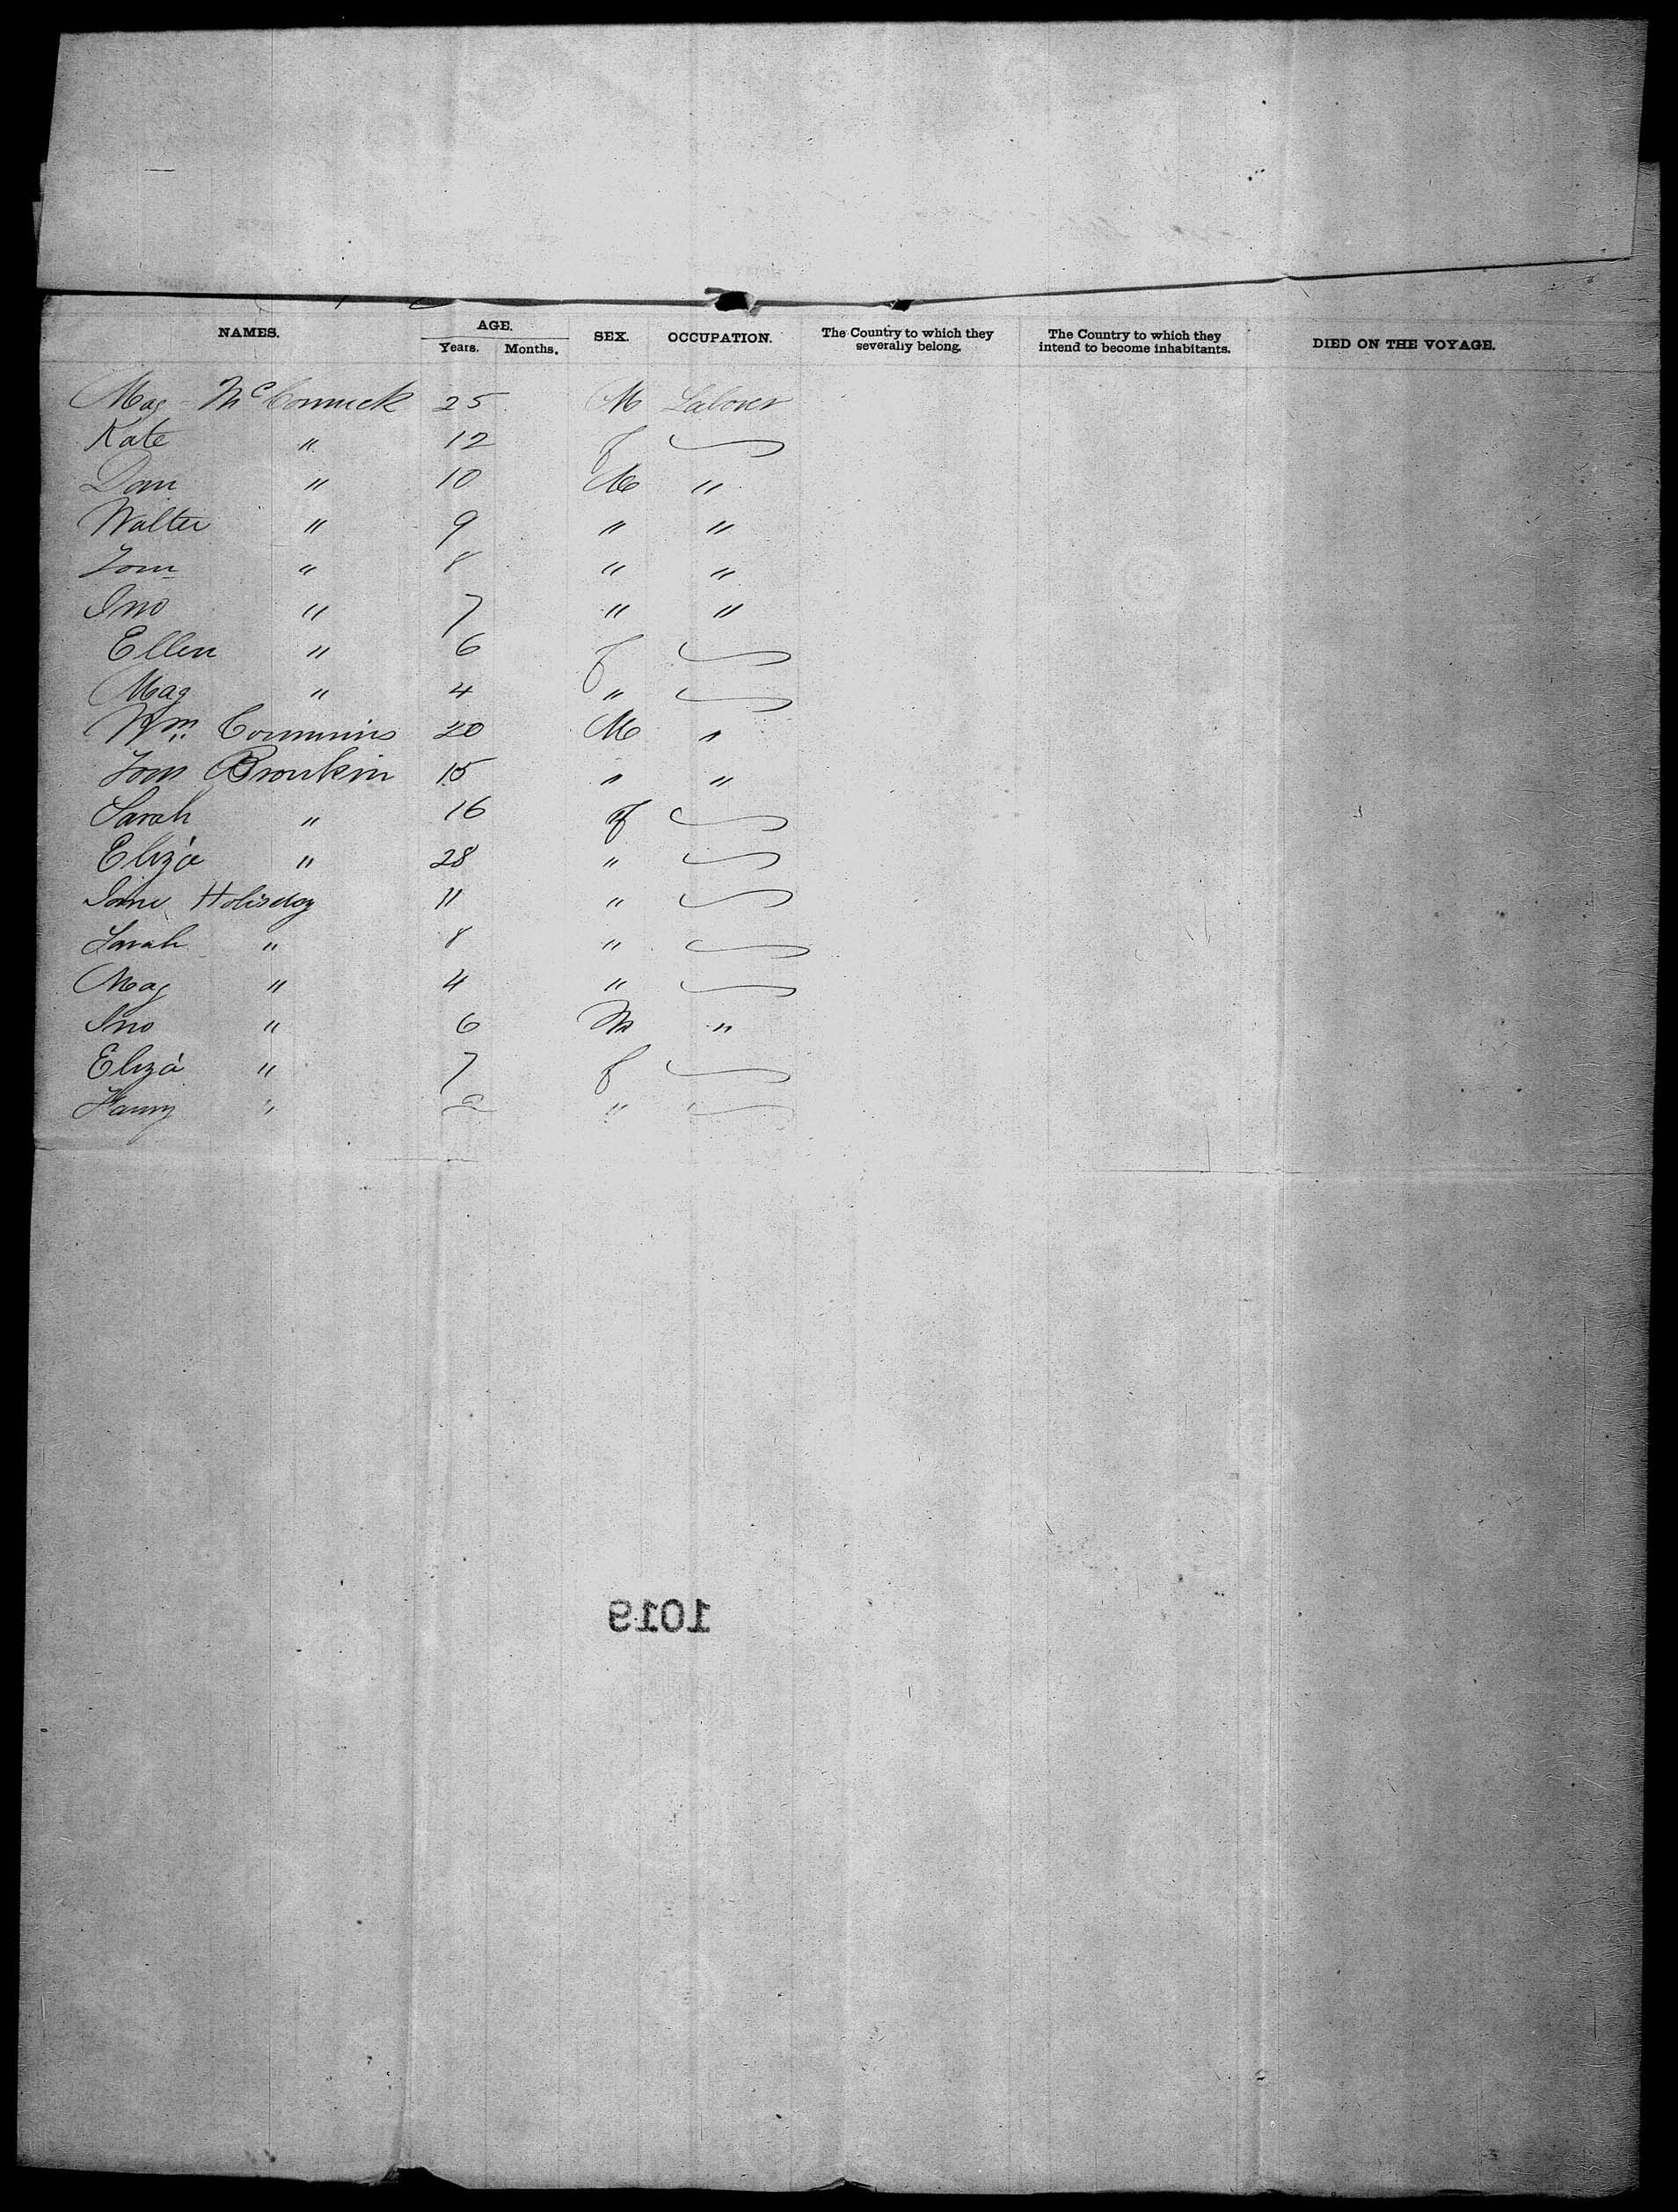 NAMES. AGE. Years. Months. SEX. OCCUPATION. The Country to which they severally belong. The Country to which they intend to become inhabitants. DIED ON THE VOYAGE.
Mag McCormick 25 M Laborer
Kate " 12 f
Dan " 10 M "
Walter " 9 " "
Tom " 8 " "
Jno " 7 " "
Ellen " 6 f
Mag " 4 "
Wm Commins 20 M "
Tom Bronkin 15 " "
Sarah " 16 f
Eliza " 28 "
Jane Holisday 11 "
Sarah " 8 "
Mag " 4 "
Jno " 6 M "
Eliza " 7 f
Fanny " "
1019